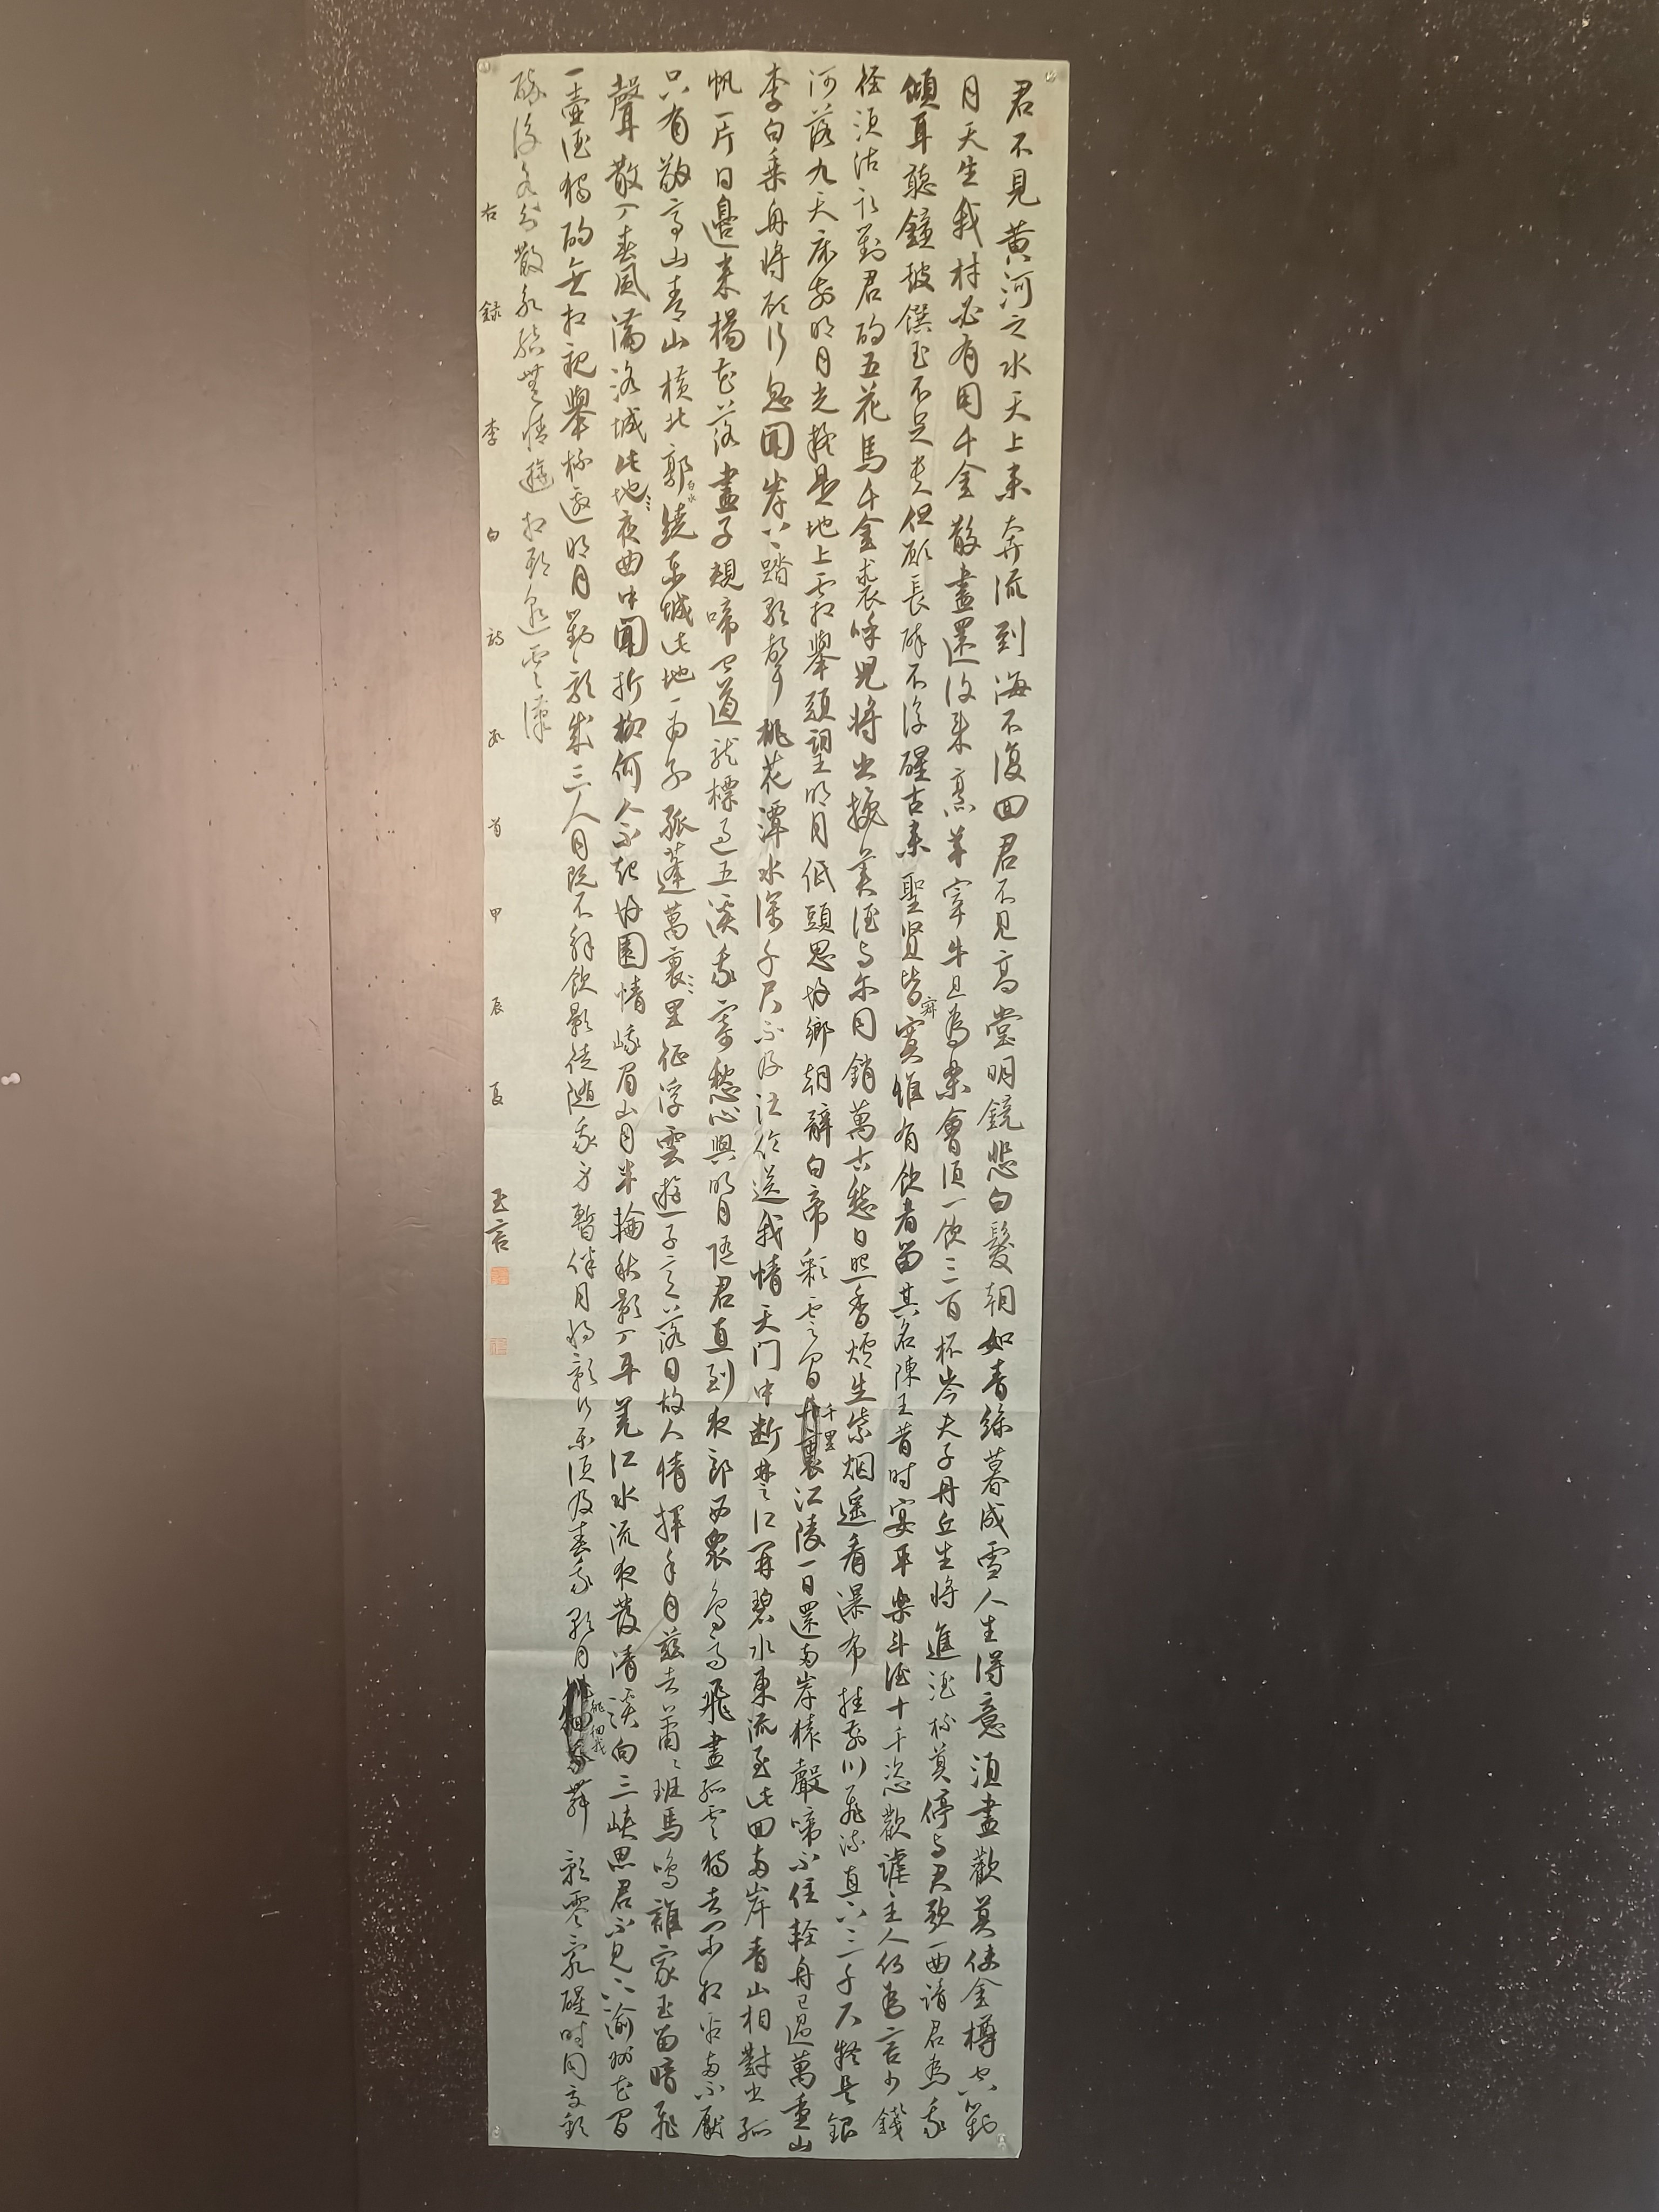 君不見黄河之水天上来奔流到海不復回君不見高堂明鏡悲白髮朝如青絲暮成雪人生得意須盡歡莫使金樽空對
月天生我材必有用千金散盡還復来烹羊宰牛且為樂會須一飲三百杯岑夫子丹丘生將進酒杯莫停与君歌一曲請君為我
傾耳聽鐘鼓饌玉不足貴但願長醉不復醒古来聖賢皆寞惟有飲者留其名陳王昔時宴平樂斗酒十千恣歡謔主人何為言少錢
寂
径須沽取對君酌五花馬千金裘呼兒將出換美酒与尔同銷萬古愁日照香爐生紫烟遥看瀑布挂前川飛流直下三千尺疑是銀
河落九天床前明月光疑是地上霜舉頭望明月低頭思故鄉朝辭白帝彩雲間江陵一日還兩岸猿聲啼不住輕舟已過萬重山
千里
李白乘舟將欲行忽聞岸上踏歌聲桃花潭水深千尺不及汪倫送我情天门中断楚江開碧水東流至此回兩岸青山相對出孤
帆一片日邊来楊花落盡子規啼聞道龍標過五溪我寄愁心與明月随君直到夜郎西衆鳥高飛盡孤雲獨去閒相看兩不厭
只有敬亭山青山横北郭繞東城此地一為别孤蓬萬裏征浮雲遊子意落日故人情揮手自兹去蕭〻班馬鳴誰家玉笛暗飛
白水
里
聲散入春風滿洛城此地夜曲中聞折柳何人不起故園情峨眉山月半輪秋影入平羌江水流夜發清溪向三峽思君不見下渝州花間
一壶酒獨酌無相親舉杯邀明月對影成三人月既不解飲影徒隨我身暫伴月將影行樂須及春我歌月舞影零亂醒時同交歡
徘徊我
醉後各分散永結無情遊相期邈雲漢
右録李白詩数首甲辰夏
玉言